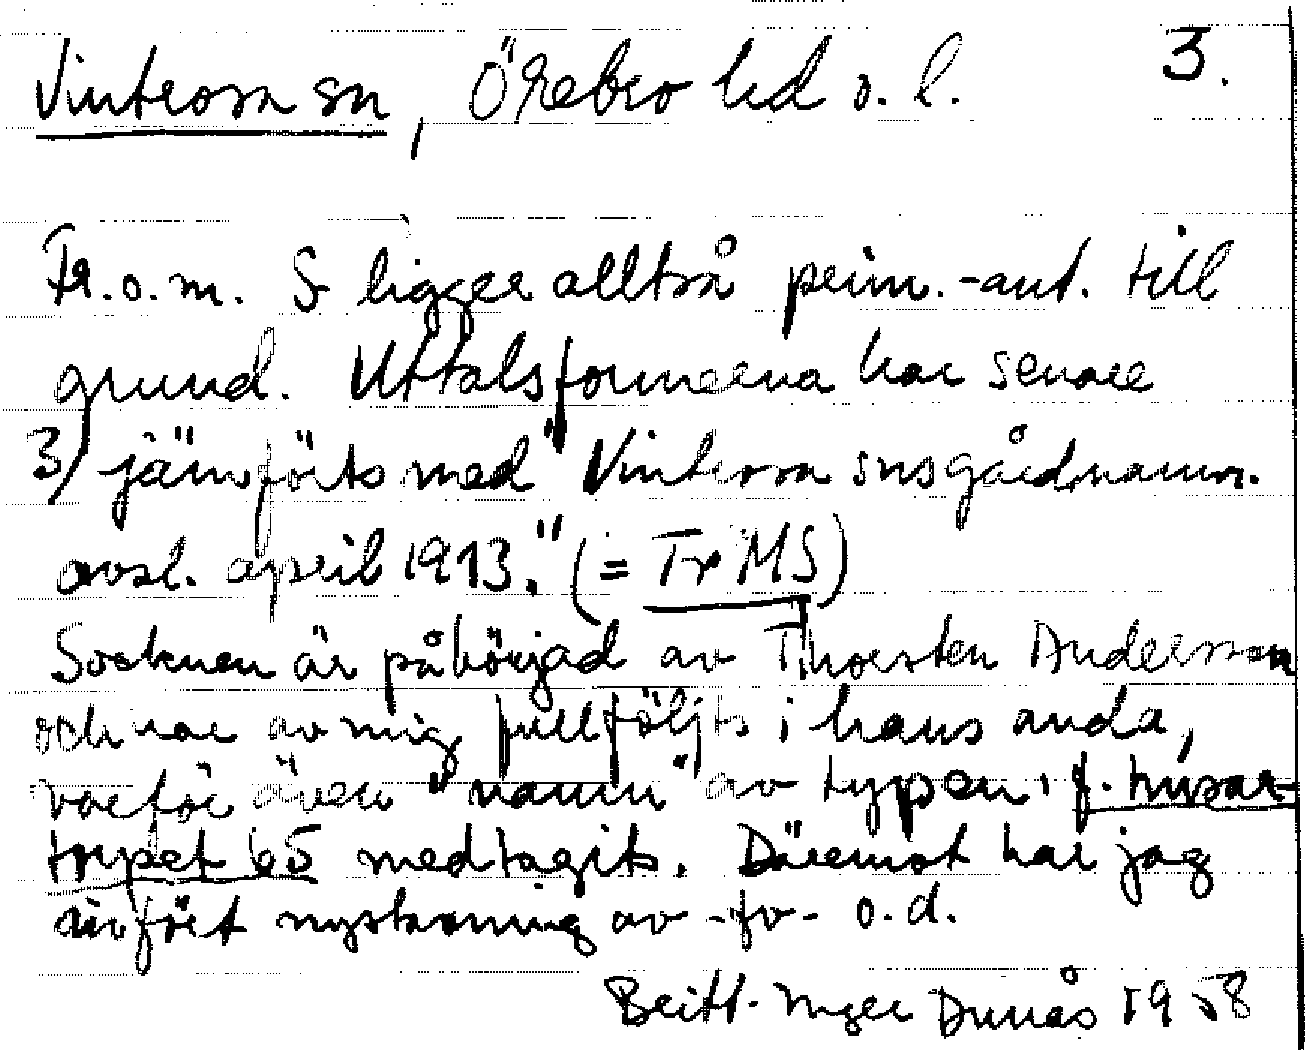 Vinterosa sn, Örebro hd o. l. 3.
Fr.o.m. S ligger alltså prim.-ant. till
grund. Uttalsformerna har senare
3) jämförts med "Vinterosa snsgårdnamn.
avsl. april 1913." (= Tr MS)
Socknen är påbörjad av Thorsten Andersson
och har av mig fullföljts i hans anda,
varför även "namn" av typen f. husar-
torpet 65 medtagits. Däremot har jag
infört nyskrivning av -fv- o.d.
Britt-Inger Dunås 1958